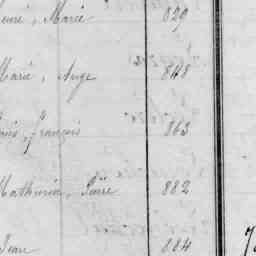 Marie 829
Marie, Ange 848
François 863
Mathurin, Pierre 882
Jean 884